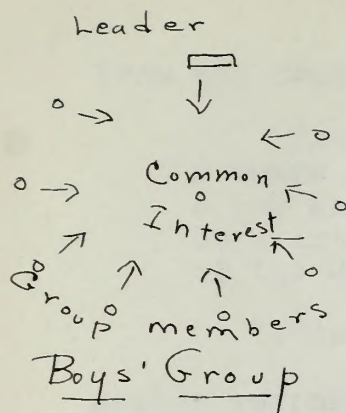 Leader
Common
Interest
Group members
Boys' Group